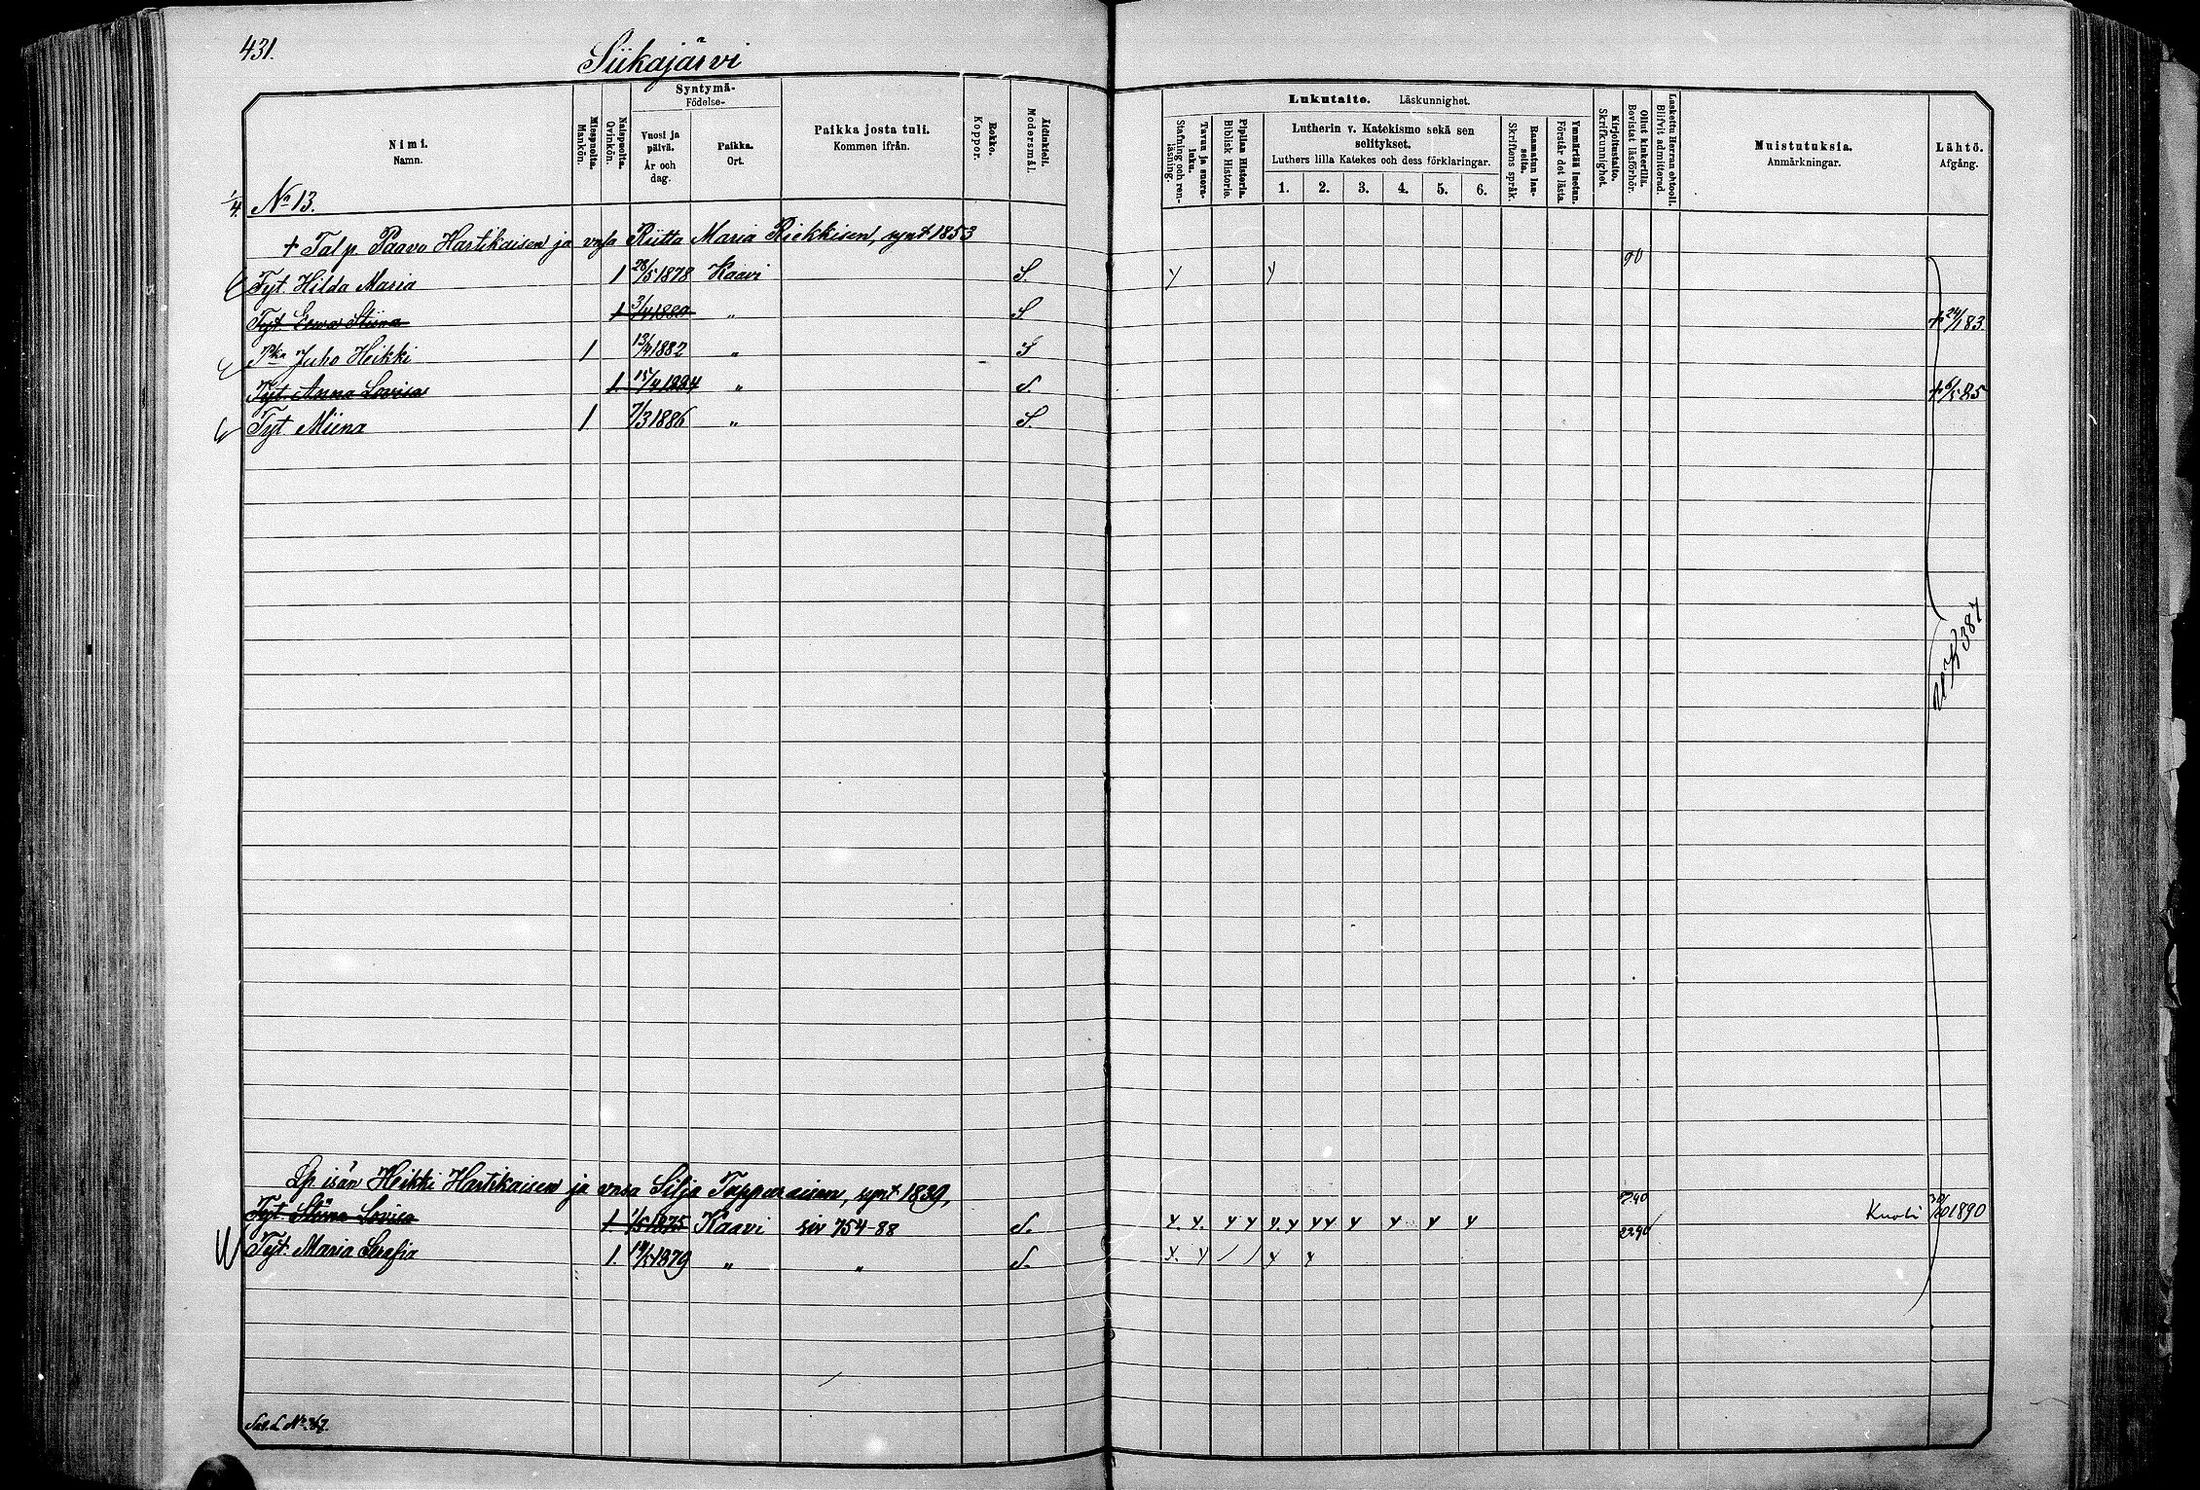 431.
Siikajärvi
Nimi.
Namn.
Miespuolta.
Mankön.
Naispuolta.
Qvinkön.
Syntymä-
Födelse-
Vuosi ja päivä.
År och dag.
Paikka.
Ort.
Paikka josta tuli.
Kommen ifrån.
Rokko.
Koppor.
Äidinkieli.
Modersmål.
Lukutaito. Läskunnighet.
Tavuu ja suora-luku.
Stafning och ren-läsning.
Piplian Historia.
Biblisk Historie.
Lutherin v. Katekismo sekä sen selitykset.
Luthers lilla Katekes och dess förklaringar.
1. 2. 3. 4. 5. 6.
Raamatun lau-seita.
Skriftens språk.
Ymmärtää luetun.
Förstår det lästa.
Kirjoitustaito.
Skrifkunnighet.
Ollut kinkerillä.
Bevistat läsförhör.
Laskettu Herran ehtooll.
Blifvit admitterad.
Muistutuksia.
Anmärkningar.
Lähtö.
Afgång.
1/4 No 13.
+ Talp. Paavo Hartikaisen ja vmsa Riitta Maria Riekkisen, synt 1853
90
Tyt. Hilda Maria 1 28/5 1878 Kaavi S. y y
Tyt. Eewa Stiina 1 3/4 1880 " S + 24/1 83
Pka Juho Heikki 1 13/4 1882 " S
Tyt. Anna Lovisa 1. 15/4 1884 " S. + 6/5 85
Tyt Miina 1 7/3 1886 " S.
387
Lp isän Heikki Hartikaisen ja vmsa Silja Tapparaisen, synt 1839,
Tyt. Stiina Lovisa 1 1/5 1875 Kaavi siv 754-88 S. y. y. y y y. y y y y y y y Kuobi 1890
Tyt. Maria Serafia 1. 1879 " " S. y. y / / y y 2290